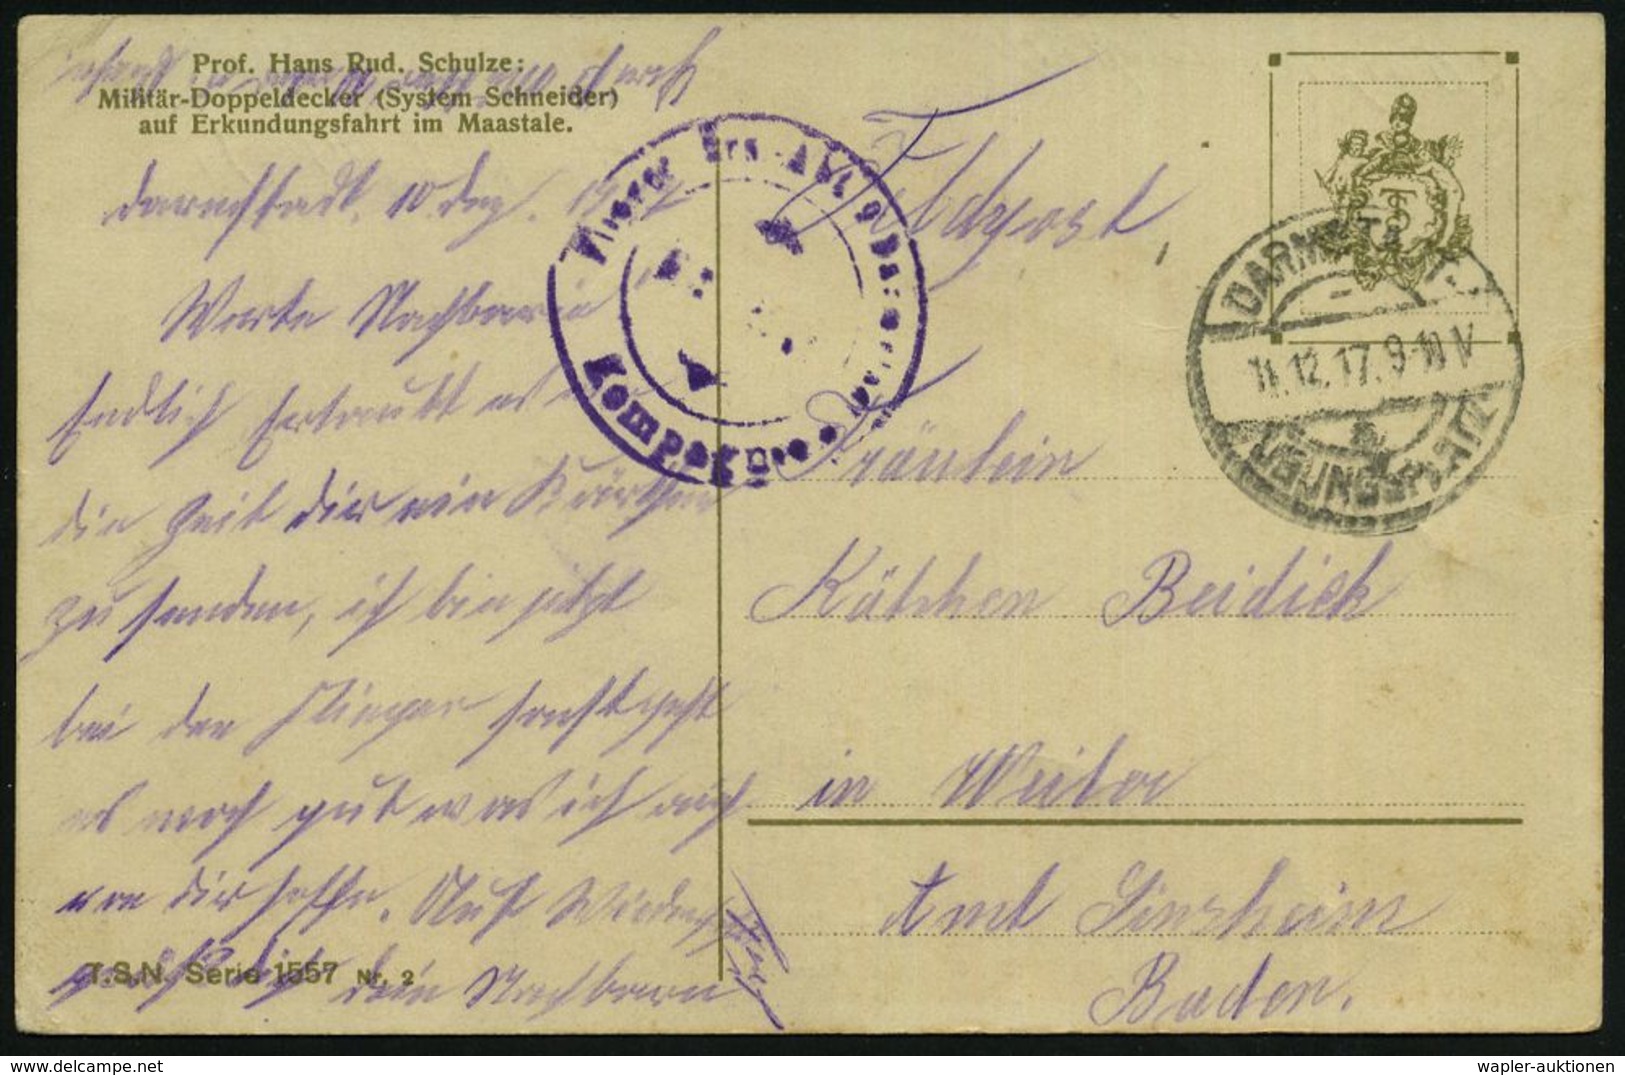 Prof. Hans Rud. Schulze:
Militär-Doppeldecker (System Schneider)
auf Erkundungsfahrt im Maastale.
Darmstadt, 10 Dez. 1917
Werte Nachbarin
Endlich Erlaubt es
die Zeit dir ein Kärtchen
zu senden, ich bin jetzt
bei den Flieger sonst geht
es noch gut was ich auch
von dir hoffe. Auf Wiedersehen
dein Nachbar
T.S.N. Serie 1557 Nr. 2
Flieger Ers. Abt. 9 Darmstadt
Kompagnie
Feldpost
DARMSTADT
11.12.17. 9-10 V
ÜBUNGSPLATZ
Fräulein
Kätchen Beidick
in Weiler
Amt Sinsheim
Baden.
wapler-auktionen